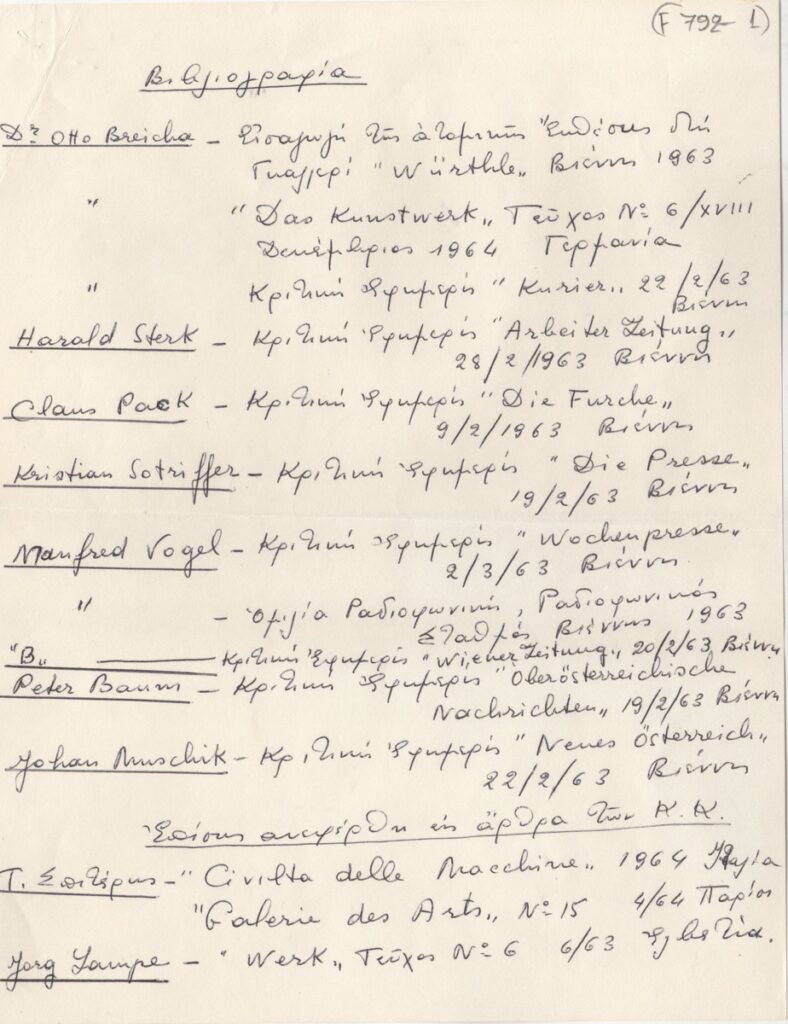 (F 792-1)
Βιβλιογραφία
Dr Otto Breicha - Εἰσαγωγή τῆς ἀτομικῆς Ἐκθέσεως στή
Γκαλλερί "Würthle„ Βιέννη 1963
" "Das Kunstwerk„ Τεῦχος Νο 6/XVIII
Δεκέμβριος 1964 Γερμανία
" Κριτική Ἐφημερίς "Kurier„ 22/2/63
Βιέννη
Harald Sterk - Κριτική Ἐφημερίς "Arbeiter Zeitung„
28/2/1963 Βιέννη
Claus Pack - Κριτική Ἐφημερίς "Die Furche„
9/2/1963 Βιέννη
Kristian Sotriffer - Κριτική Ἐφημερίς "Die Presse„
19/2/63 Βιέννη
Manfred Vogel - Κριτική Ἐφημερίς "Wochenpresse„
2/3/63 Βιέννη
" - Ὁμιλία Ραδιοφωνική, Ραδιοφωνικός
Σταθμός Βιέννης 1963
"B„ - Κριτική Ἐφημερίς "Wiener Zeitung„ 20/2/63 Βιέννη
Peter Baum - Κριτική Ἐφημερίς "Oberösterreichische
Nachrichten„ 19/2/63 Βιέννη
Johan Muschik - Κριτική Ἐφημερίς "Neues Österreich„
22/2/63 Βιέννη
Ἐπίσης ἀνεφέρθη εἰς ἄρθρα τῶν Κ.Κ.
Τ. Σπιτέρης - "Civilta delle Macchine„ 1964 Ἰταλία
"Galerie des Arts„ No 15 4/64 Παρίσι
Jorg Lampe - "Werk„ Τεῦχος Νο 6 6/63 Ἑλβετία.